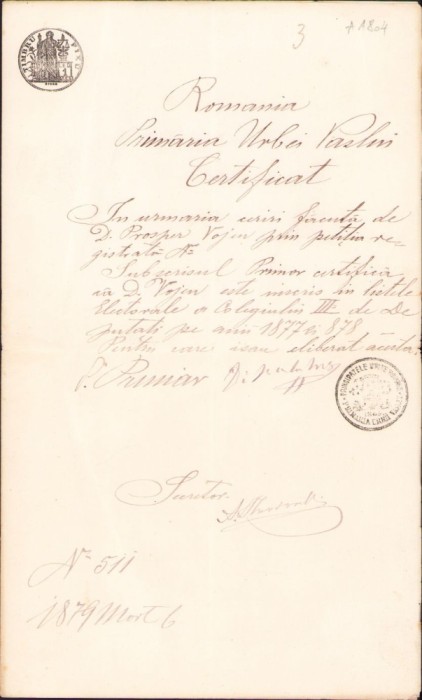 TIMBRU FIX
3
A 1804
Romania
Primăria Urbei Vaslui
Certificat
In urmaria cerirei făcută de
D. Prosper Vojen prin petiția re=
gistrată No
Subscrisul Primar certifică
că D. Vojen este inscris in listele
Electorale a Colegiului III de De
putati pe anii 1877 și 878
Pentru care isau eliberat acesta.
p. Primar
Secretar
No 511
1879 Mart 6